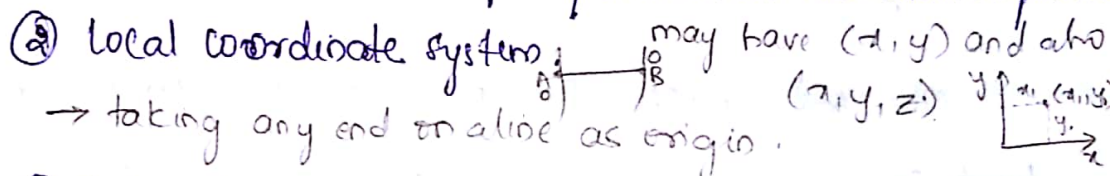 ② local coordinate system: A O B O may have (x, y) and also
(x, y, z) y x₁ (x₁, y₁ y₁ x
→ taking any end on a line as origin.